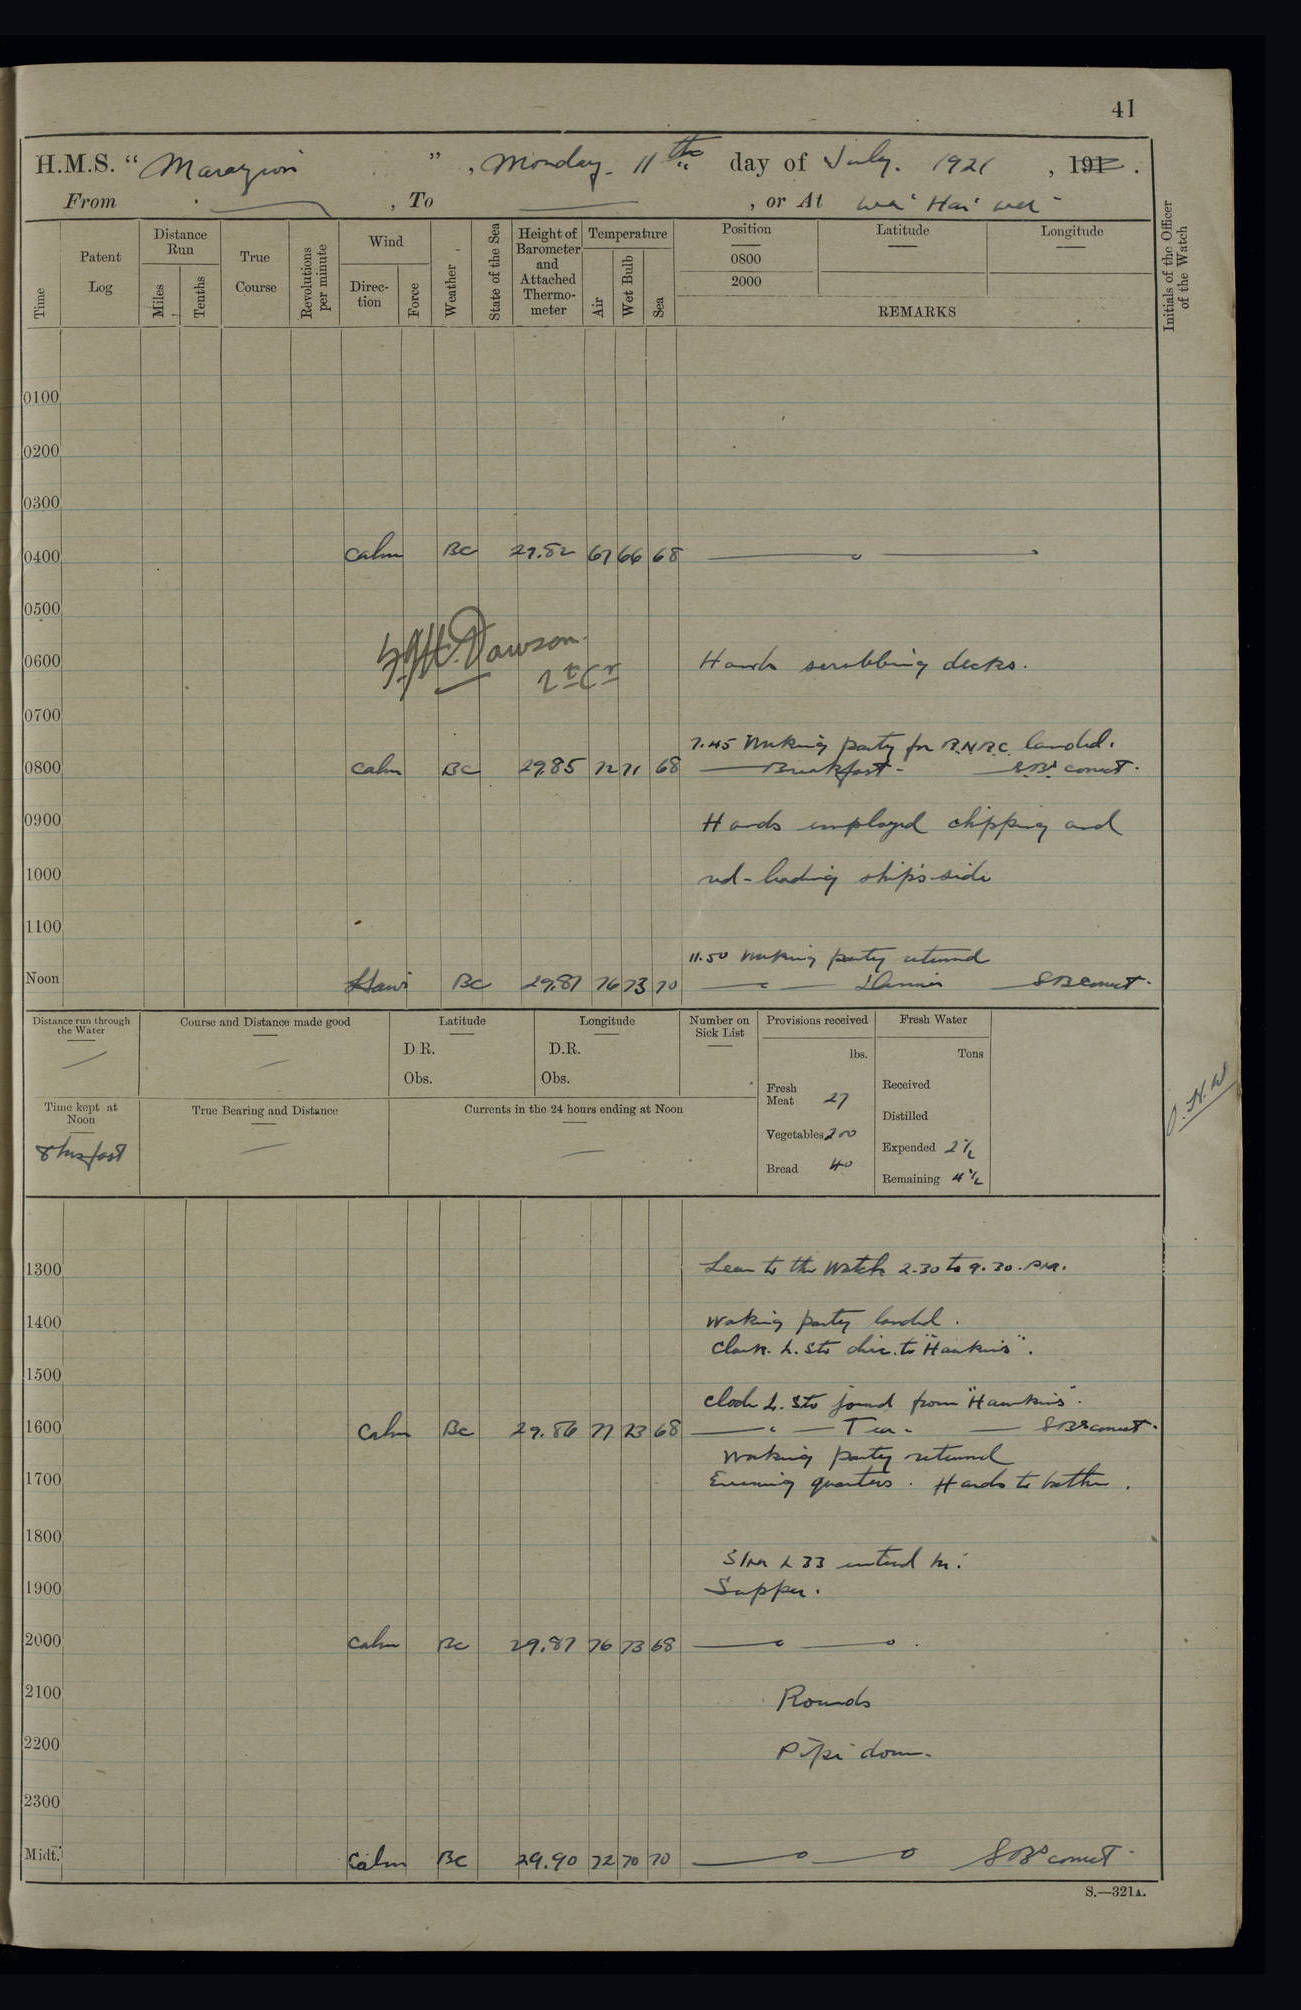 41
H.M.S. "Marazion", Monday. 11th day of July. 1921, 191 .
From , To , or At Wei Hai Wei
Time Patent Log Distance Run Miles Tenths True Course Revolutions per minute Wind Direc-tion Force Weather State of the Sea Height of Barometer and Attached Thermo-meter Temperature Air Wet Bulb Sea Position 0800 2000 Latitude Longitude REMARKS Initials of the Officer of the Watch
0100
0200
0300
0400 Calm BC 29.82 67 66 68
0500
Dawson
Lt Cr
0600 Hands scrubbing decks.
0700
7.45 Working party for R.N.R.C. landed.
0800 Calm BC 29.85 72 71 68 Breakfast - S.Bs. correct.
0900 Hands employed chipping and
1000 red-leading ship's side
1100
11.50 Working party returned
Noon BC 29.87 76 73 70 Dinner S.Bs correct.
Distance run through the Water Course and Distance made good Latitude Longitude Number on Sick List Provisions received Fresh Water
D.R. D.R. lbs. Tons
Obs. Obs.
Fresh Meat 27 Received
Time kept at Noon True Bearing and Distance Currents in the 24 hours ending at Noon
Distilled
8 hrs fast Vegetables 200 Expended 2½
Bread 40 Remaining 4½
O.N.W
1300 Leave to the Watch 2.30 to 9.30. P.M.
1400 Working party landed.
L. Sto disc. to "Hawkins".
1500
L. Sto joined from "Hawkins".
1600 Calm BC 29.86 77 73 68 Tea. S.Bs correct.
Working party returned
1700 Evening quarters. Hands to bathe.
1800
S/M L 33 entered hr.
1900 Supper.
2000 Calm BC 29.87 76 73 68
2100 Rounds
2200 Pipe down.
2300
Midt. Calm BC 29.90 72 70 70 S.Bs correct.
S.—321A.